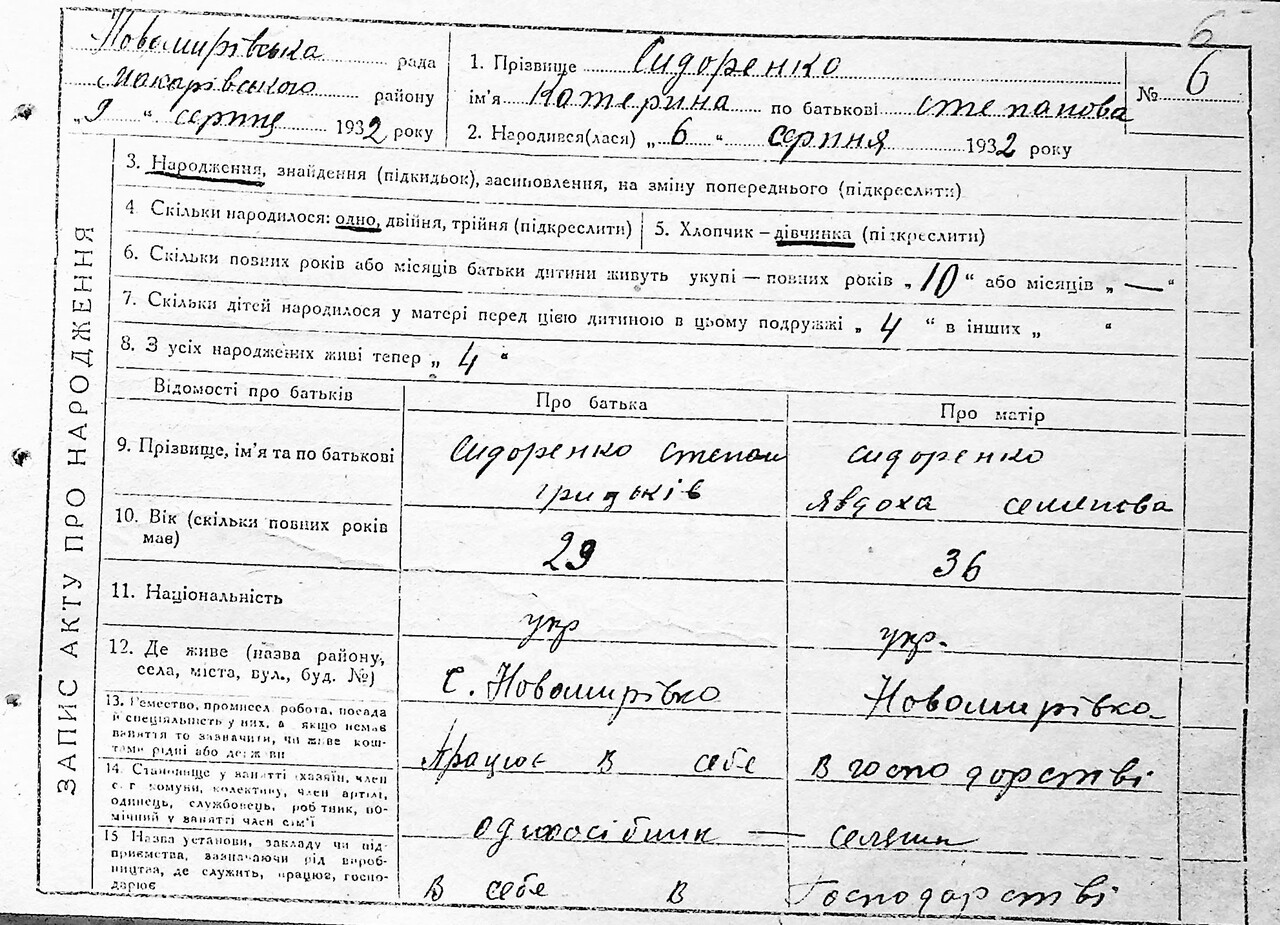 6
Новомирівська рада
Макарівського району
„9 “ серпня 1932 року
1. Прізвище Сидоренко
ім’я Катерина по батькові степанова
2. Народився(лася) „ 6 “ серпня 1932 року
№ 6
ЗАПИС АКТУ ПРО НАРОДЖЕННЯ
3. Народження, знайдення (підкидьок), засиновлення, на зміну попереднього (підкреслити)
4. Скільки народилося: одно, двійня, трійня (підкреслити)
5. Хлопчик – дівчинка (підкреслити)
6. Скільки повних років або місяців батьки дитини живуть укупі — повних років „ 10 “ або місяців „ — “
7. Скільки дітей народилося у матері перед цією дитиною в цьому подружжі „ 4 “ в інших „ “
8. З усіх народжених живі тепер „ 4 “
Відомості про батьків
Про батька
Про матір
9. Прізвище, ім’я та по батькові
Сидоренко степан
гридьків
сидоренко
явдоха семенова
10. Вік (скільки повних років
має)
29
36
11. Національність
укр
укр.
12. Де живе (назва району,
села, міста, вул., буд. №)
С. Новомирівка
Новомирівка
13. Ремество, промисел робота, посада
й спеціяльність у них, а якщо немає
заняття то зазначити, чи живе кош-
тами рідні або держави
працює в себе
в господорстві
14. Становище у занятті (хазяїн, член
с.-г комуни, колективу, член артілі,
одинець, службовець, робітник, по-
мічний у занятті член сім’ї
одноосібник —
селянин
15 Назва установи, закладу чи під-
приємства, зазначаючи рід вироб-
ництва, де служить, працює, госпо-
дарює
в себе в
Господорстві